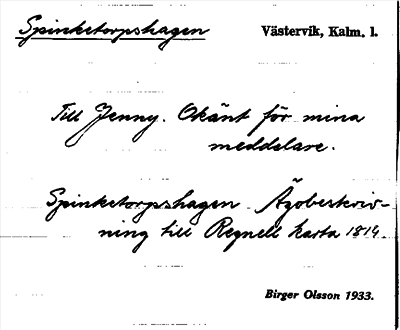 Spinketorpshagen
Västervik, Kalm. l.
Till Jenny. Okänt för mina
meddelare.
Spinketorpshagen Ägobeskriv-
ning till Regnell karta 1814.
Birger Olsson 1933.